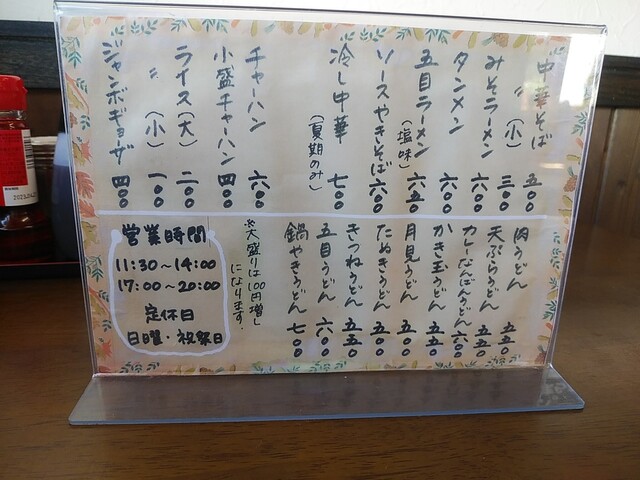 中華そば 五〇〇
〃 (小) 三〇〇
みそラーメン 六〇〇
タンメン 六〇〇
五目ラーメン (塩味) 六五〇
ソースやきそば 六〇〇
冷し中華 (夏期のみ) 七〇〇
チャーハン 六〇〇
小盛チャーハン 四〇〇
ライス(大) 二〇〇
〃 (小) 一〇〇
ジャンボギョーザ 四〇〇
肉うどん 五五〇
天ぷらうどん 五五〇
カレーなんばんうどん 六〇〇
かき玉うどん 五五〇
月見うどん 五〇〇
たぬきうどん 五〇〇
きつねうどん 五五〇
五目うどん 六〇〇
鍋やきうどん 七〇〇
※大盛りは100円増し
になります.
営業時間
11:30~14:00
17:00~20:00
定休日
日曜・祝祭日